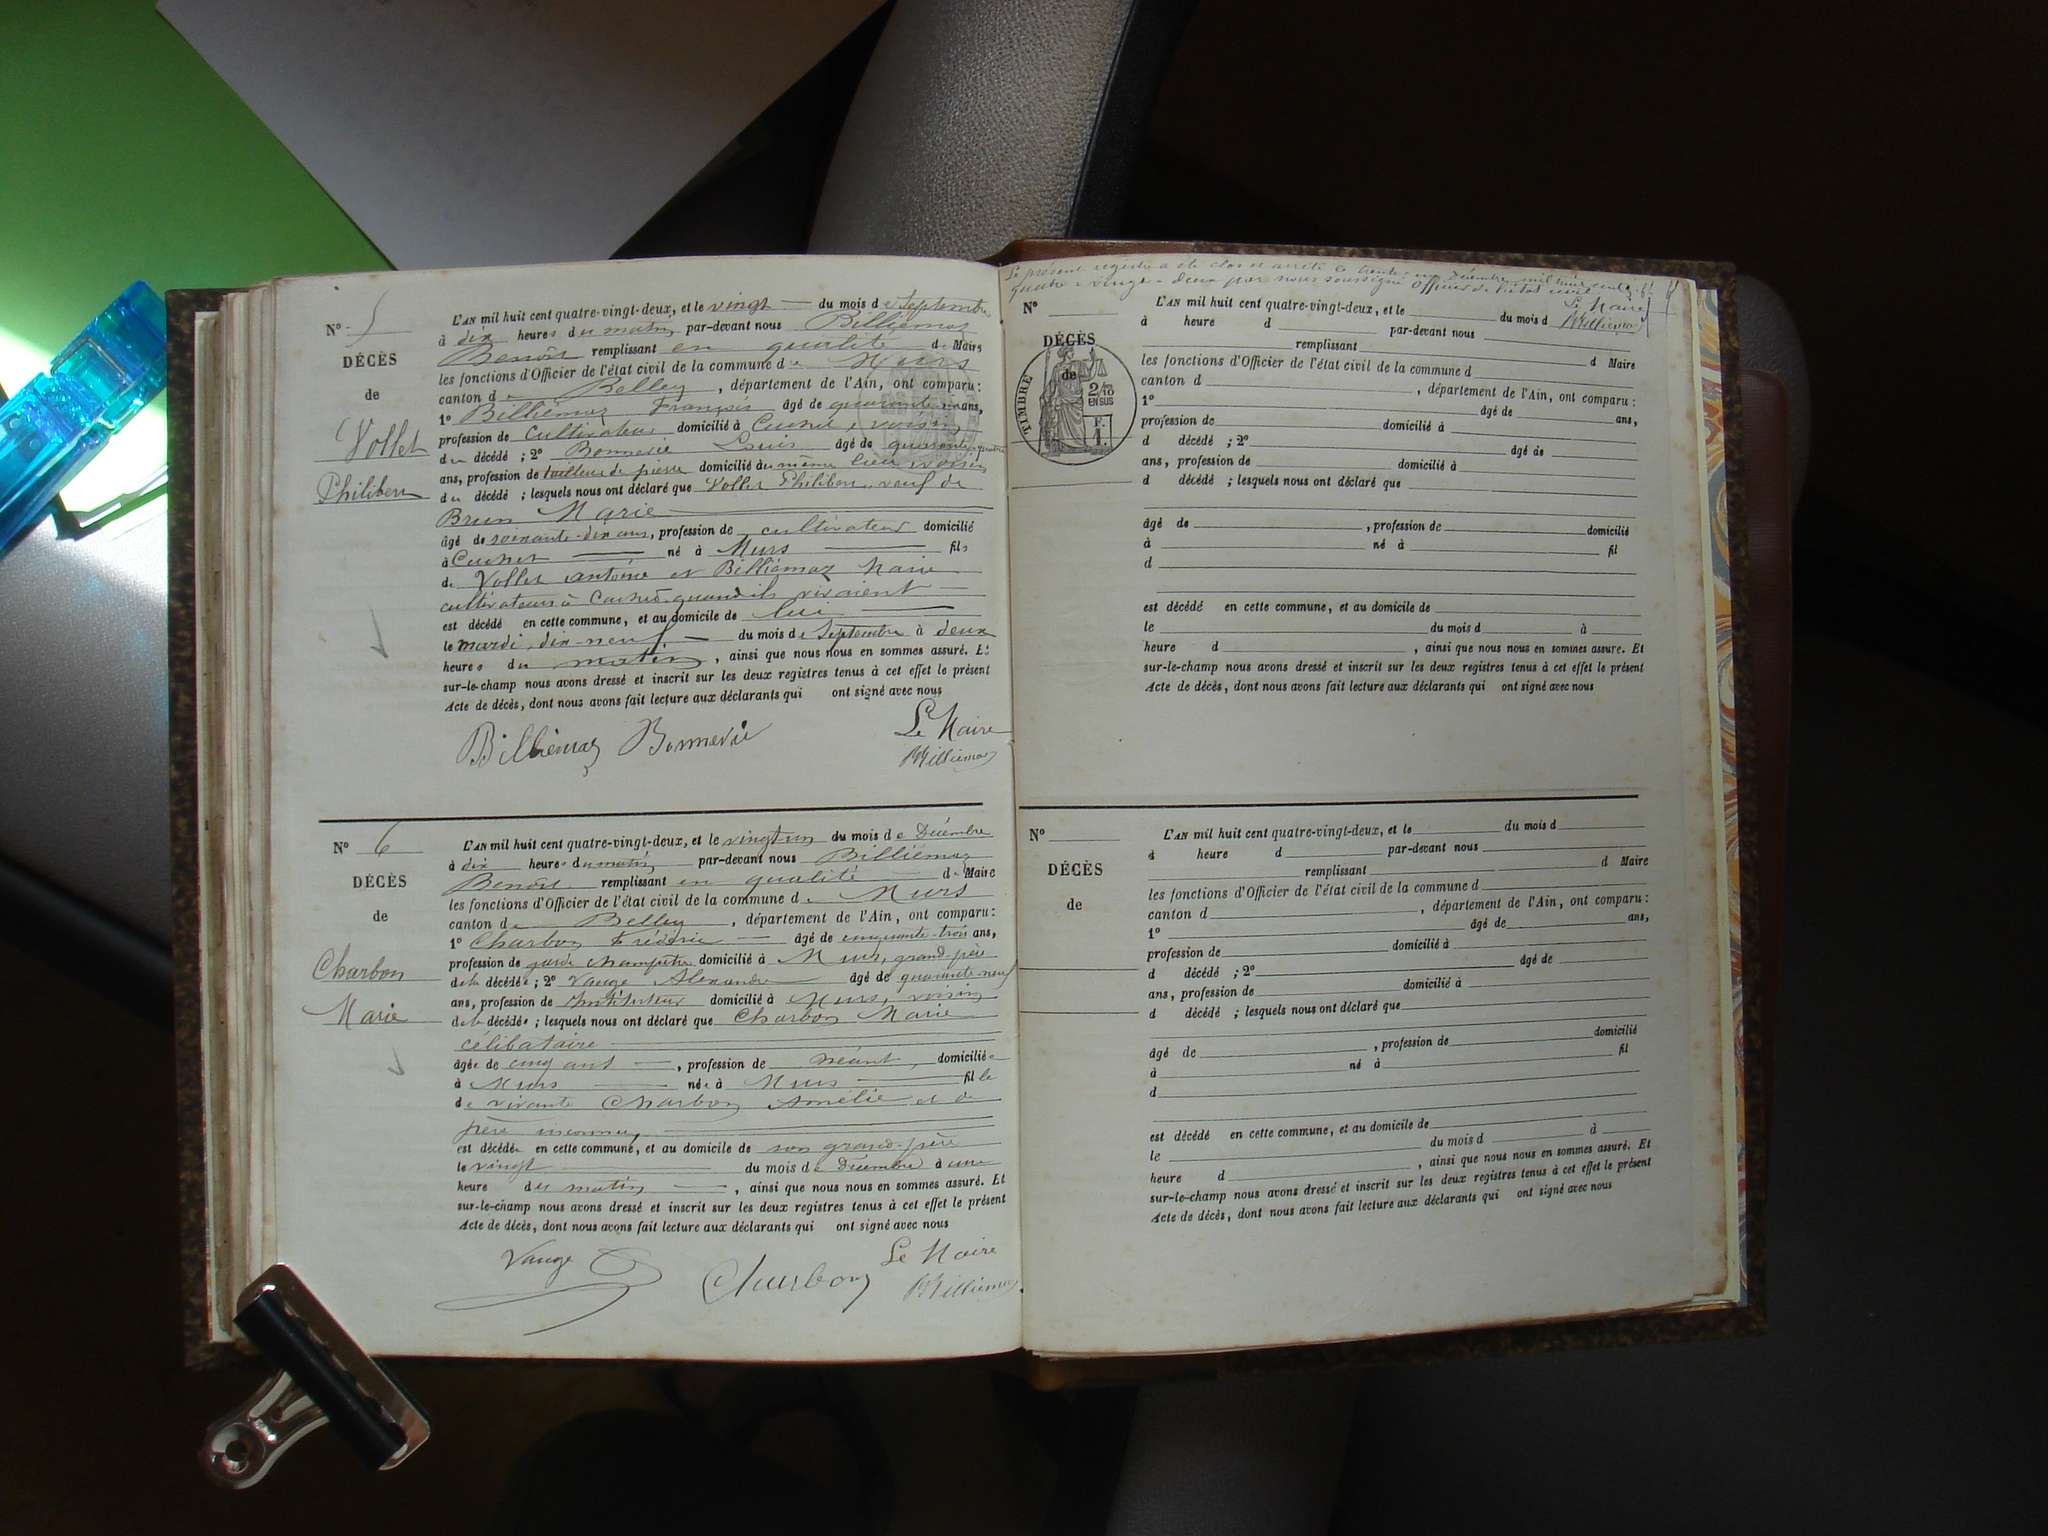 Nº 5
DÉCÈS
de
Vollet
Philibert
L'AN mil huit cent quatre-vingt-deux, et le vingt du mois de Septembre
à dix heures du matin par-devant nous Billiémaz
Benoît remplissant en qualité de Maire
les fonctions d'Officier de l'état civil de la commune de Murs
canton de Belley, département de l'Ain, ont comparu:
1º Billiémaz François âgé de ans,
profession de cultivateur domicilié à Cuchet, voisin
du décédé; 2º Bonnevie Louis âgé de quarante-quatre
ans, profession de tailleur de pierre domicilié au même lieu, voisin
du décédé; lesquels nous ont déclaré que Vollet Philibert, veuf de
Brun Marie
âgé de soixante-dix ans, profession de cultivateur domicilié
à Cuchet né à Murs fils
de Vollet Antoine et Billiémaz Marie
cultivateurs à Cuchet quand ils vivaient
est décédé en cette commune, et au domicile de lui
le mardi, dix-neuf du mois de Septembre à deux
heures du matin, ainsi que nous nous en sommes assuré. Et
sur-le-champ nous avons dressé et inscrit sur les deux registres tenus à cet effet le présent
Acte de décès, dont nous avons fait lecture aux déclarants qui ont signé avec nous
Billiémaz Bonnevie Le Maire
BBilliémaz
Nº 6
DÉCÈS
de
Charbon
Marie
L'AN mil huit cent quatre-vingt-deux, et le vingt un du mois de Décembre
à dix heures du matin par-devant nous Billiémaz
Benoît remplissant en qualité de Maire
les fonctions d'Officier de l'état civil de la commune de Murs
canton de Belley, département de l'Ain, ont comparu:
1º Charbon Frédéric âgé de cinquante-trois ans,
profession de garde champêtre domicilié à Murs, grand-père
de la décédée; 2º Vauge Alexandre âgé de quarante neuf
ans, profession de Instituteur domicilié à Murs, voisin
de la décédée; lesquels nous ont déclaré que Charbon Marie
célibataire
âgée de cinq ans, profession de néant, domiciliée
à Murs née à Murs fille
de vivante Charbon Amélie et de
père inconnu,
est décédée en cette commune, et au domicile de son grand-père
le vingt du mois de Décembre à une
heure du matin, ainsi que nous nous en sommes assuré. Et
sur-le-champ nous avons dressé et inscrit sur les deux registres tenus à cet effet le présent
Acte de décès, dont nous avons fait lecture aux déclarants qui ont signé avec nous
Vauge Charbon Le Maire
BBilliémaz
Le présent registre a été clos et arrêté le trente-un Décembre mil huit cent
quatre-vingt-deux par nous soussigné Officier de l'état civil
Le Maire
BBilliémaz
Nº
DÉCÈS
de
TIMBRE
2/10
EN SUS
F.
1.
L'AN mil huit cent quatre-vingt-deux, et le du mois d
à heure d par-devant nous
remplissant d Maire
les fonctions d'Officier de l'état civil de la commune d
canton d , département de l'Ain, ont comparu:
1º âgé de ans,
profession de domicilié à
d décédé ; 2º âgé de
ans, profession de domicilié à
d décédé ; lesquels nous ont déclaré que
âgé de , profession de domicilié
à né à fil
d
est décédé en cette commune, et au domicile de
le du mois d à
heure d , ainsi que nous nous en sommes assuré. Et
sur-le-champ nous avons dressé et inscrit sur les deux registres tenus à cet effet le présent
Acte de décès, dont nous avons fait lecture aux déclarants qui ont signé avec nous
Nº
DÉCÈS
de
L'AN mil huit cent quatre-vingt-deux, et le du mois d
à heure d par-devant nous
remplissant d Maire
les fonctions d'Officier de l'état civil de la commune d
canton d , département de l'Ain, ont comparu:
1º âgé de ans,
profession de domicilié à
d décédé ; 2º âgé de
ans, profession de domicilié à
d décédé ; lesquels nous ont déclaré que
âgé de , profession de domicilié
à né à fil
d
est décédé en cette commune, et au domicile de
le du mois d à
heure d , ainsi que nous nous en sommes assuré. Et
sur-le-champ nous avons dressé et inscrit sur les deux registres tenus à cet effet le présent
Acte de décès, dont nous avons fait lecture aux déclarants qui ont signé avec nous